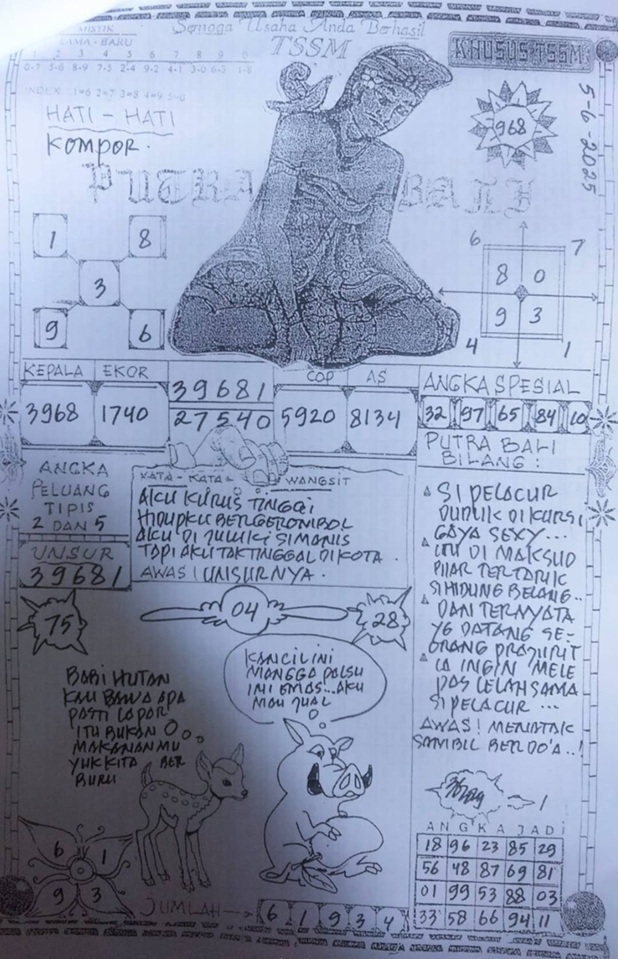 MISTIK
LAMA - BARU
1 2 3 4 5 6 7 8 9
0-7 5-6 8-9 7-5 2-4 9-2 4-1 3-0 6-3 1-8
INDEX 1=6 2=7 3=8 4=9 5=0
Semoga Usaha Anda Berhasil
TSSM
KHUSUS TSSM
5-6-2025
968
HATI - HATI
KOMPOR.
PUTRA BALI
1 8
3
9 6
6 7
8 0
9 3
4 1
KEPALA EKOR
3968 1740
39681
27540
COP AS
5920 8134
ANGKA SPESIAL
32 97 65 84 10
ANGKA
PELUANG
TIPIS
2 DAN 5
UNSUR
39681
KATA - KATA WANGSIT
AKU KURUS TINGGI
HIDUPKU BERGEROMBOL
AKU DI JULUKI SIMANIS
TAPI AKU TAK TINGGAL DI KOTA.
AWAS! UNSURNYA.
PUTRA BALI
BILANG:
SI PELACUR
DUDUK DI KURSI
GAYA SEXY...
ITU DI MAKSUD
BIAR TERTARIK
SI HIDUNG BELANG..
DAN TERNYATA
YG DATANG SE-
ORANG PRAJURIT
IA INGIN MELE
PAS LELAH SAMA
SI PELACUR ...
AWAS! MENATAK
SAMBIL BERDO'A..!
75
04
28
BABI HUTAN
KAU BAWA APA
PASTI LAPAR
ITU BUKAN
MAKANANMU
YUK KITA BER
BURU
KANCIL INI
MANGGA PALSU
INI EMAS...AKU
MAU JUAL
6 1
9 3
JUMLAH → 6 1 9 3 4
ANGKA JADI
18 96 23 85 29
56 48 87 69 81
01 99 53 88 03
33 58 66 94 11